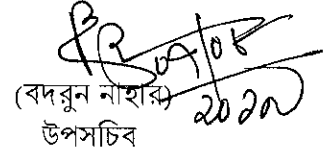 ০৭/০৮
২০১৯
(বদরুন নাহার)
উপসচিব